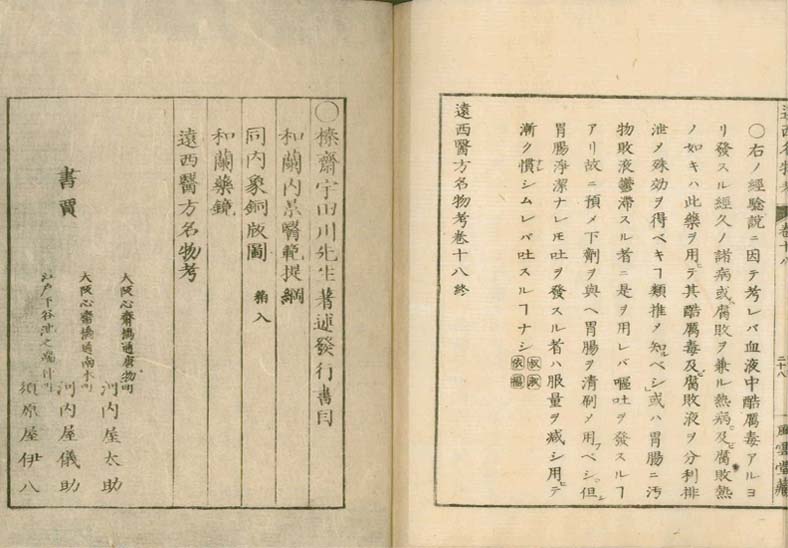 遠西名物考 卷十八 二十八 風雲堂藏
〇右ノ經驗說ニ因テ考レバ血液中酷厲毒アルヨ
リ發スル經久ノ諸病或腐敗ヲ兼ル熱病及ビ腐敗熱
ノ如キハ此藥ヲ用テ其酷厲毒及ビ腐敗液ヲ分利排
泄メ殊効ヲ得ベキヿ類推メ知ルベシ或ハ胃腸ニ汚
物敗液鬱滯スル者ニ是ヲ用レバ嘔吐ヲ發スルヿ
アリ故ニ預メ下劑ヲ與ヘ胃腸ヲ清刷メ用フベシ但シ
胃腸淨潔ナレ𪜈吐ヲ發スル者ハ服量ヲ減シ用テ
漸ク慣シムレバ吐スルヿナシ
遠西醫方名物考卷十八終
〇榛齋宇田川先生著述發行書目
和蘭內景醫範提綱
同內象銅版圖 箱入
和蘭藥鏡
遠西醫方名物考
書賈
大阪心齋橋通唐物町
河內屋太助
大阪心齋橋通南本町
河內屋儀助
江戶下谷池之端仲町
須原屋伊八